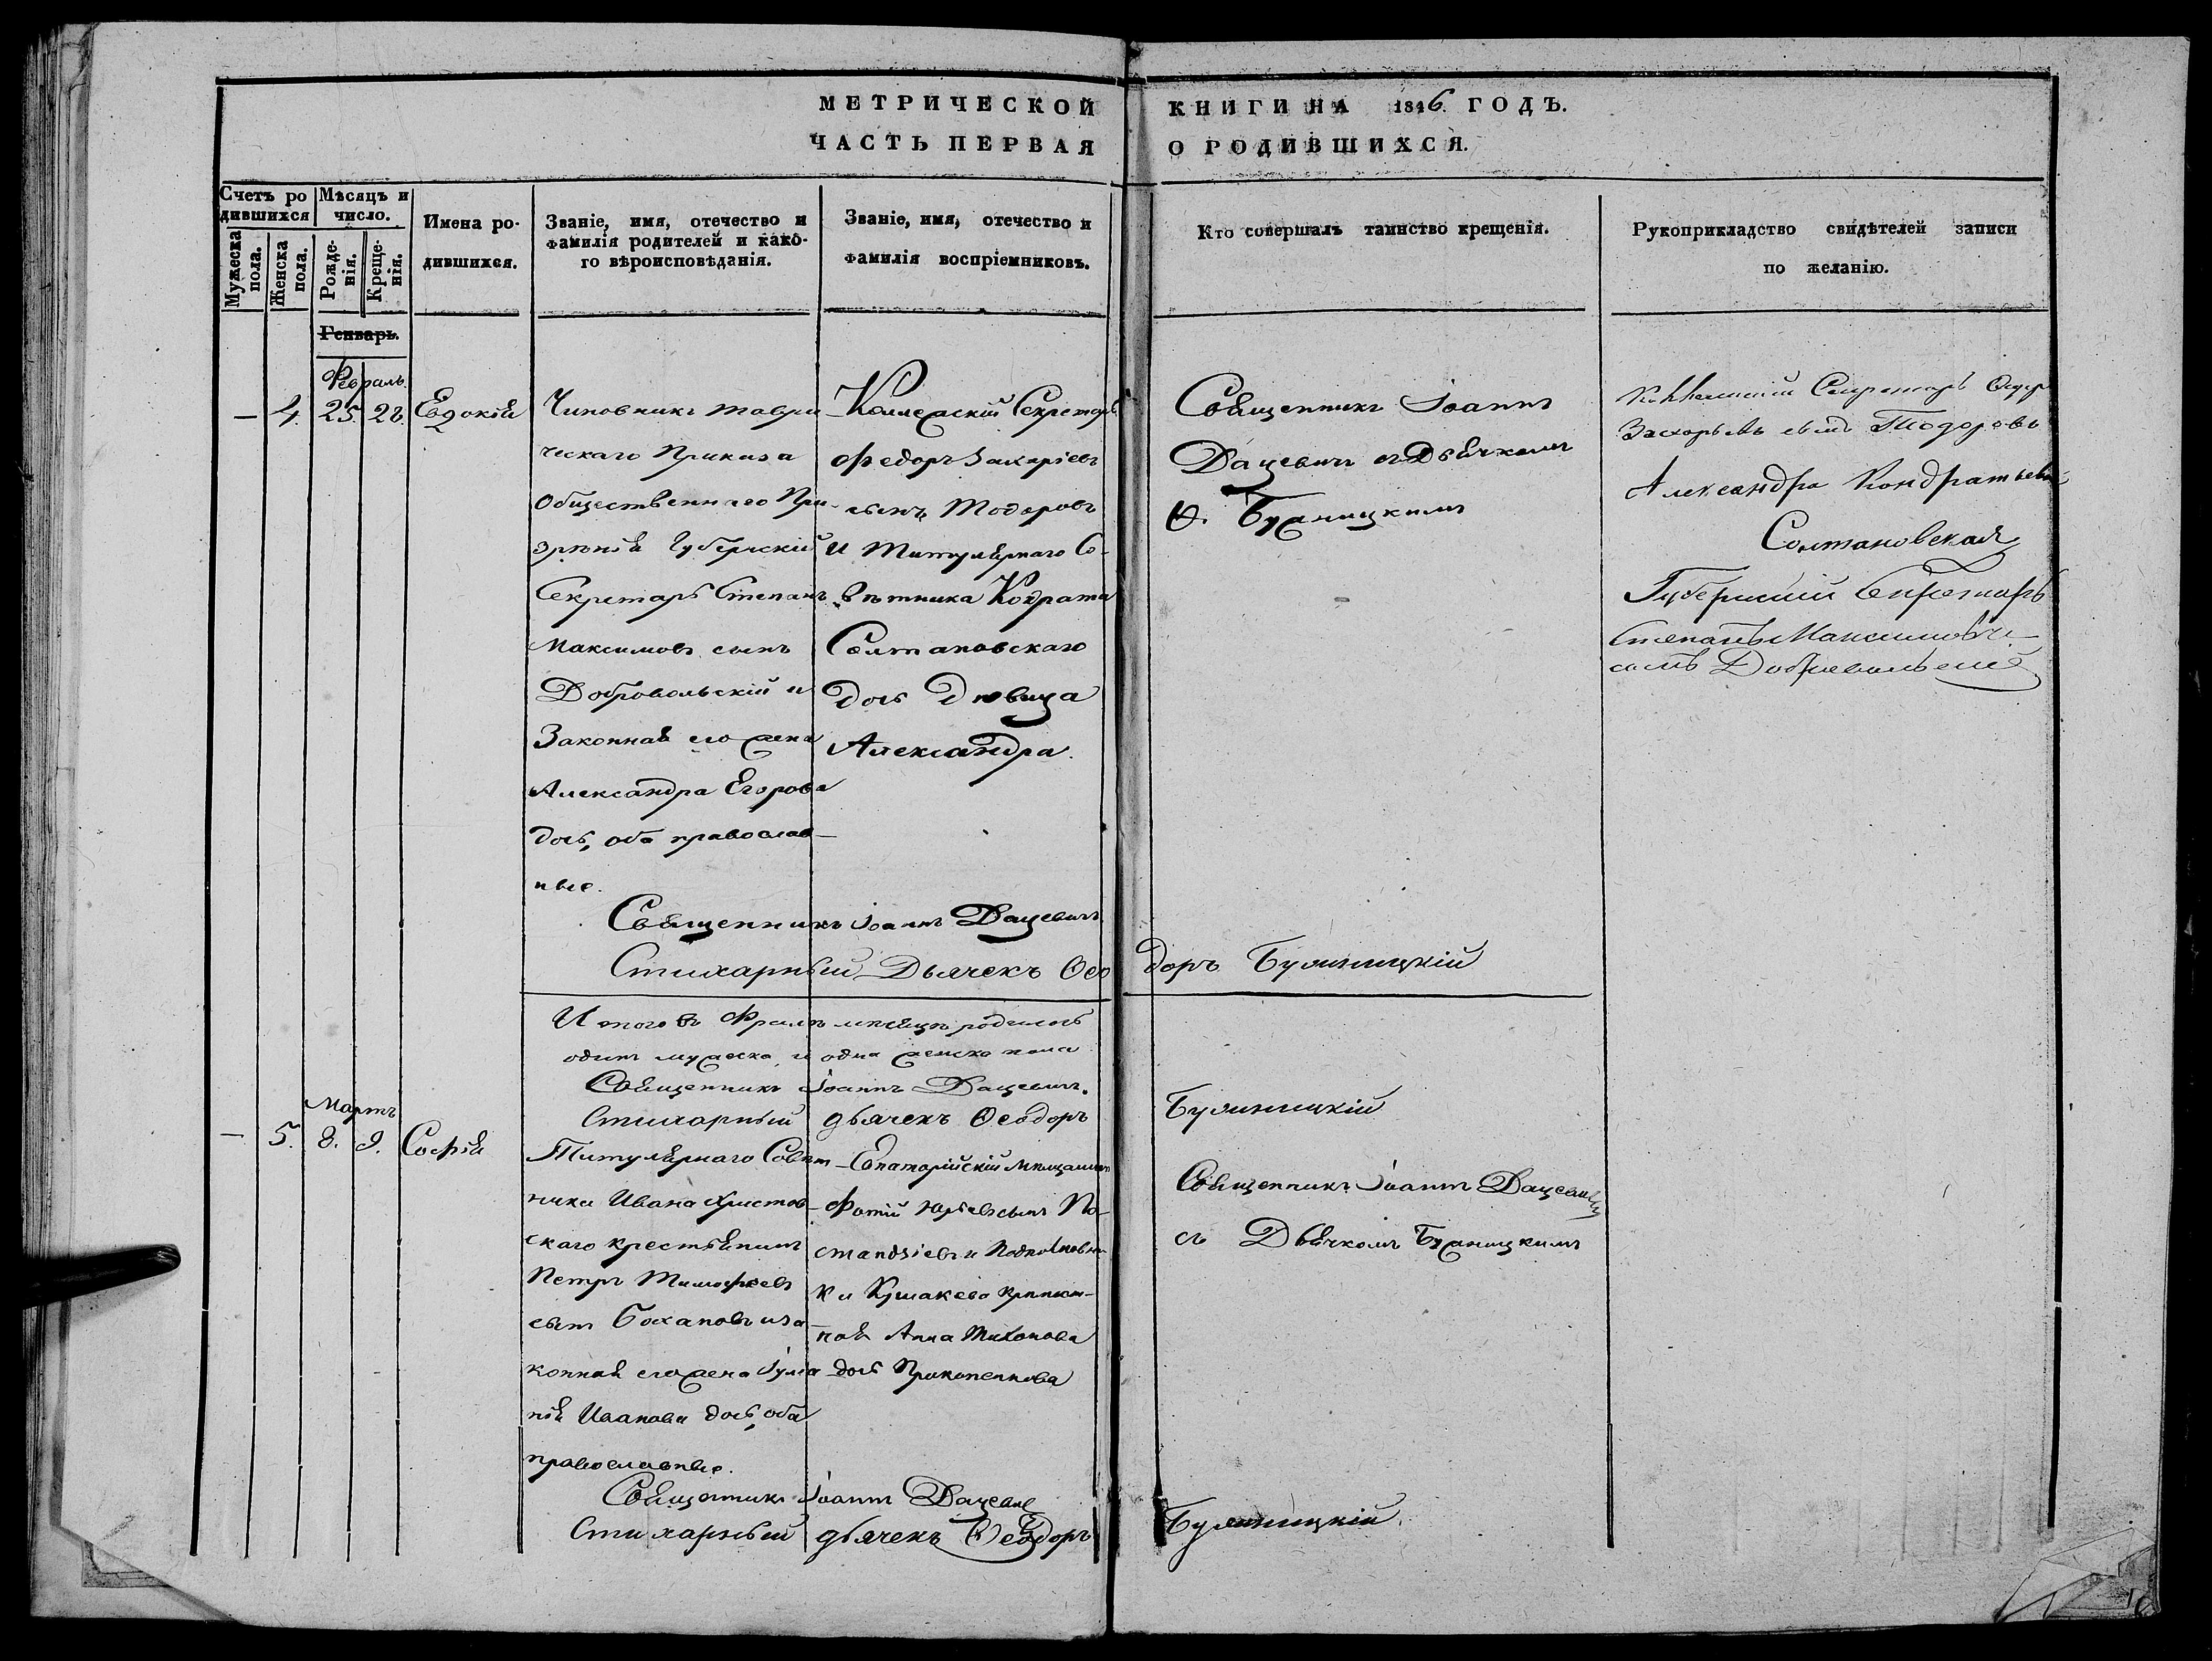 МЕТРИЧЕСКОЙ КНИГИ НА 1846. ГОДЪ.
ЧАСТЬ ПЕРВАЯ О РОДИВШИХСЯ.
Счетъ ро
дившихся
Мужеска
пола.
Женска
пола.
Мѣсяцъ и
число.
Рожде-
нія.
Креще-
нія.
Имена ро-
дившихся.
Званіе, имя, отечество и
фамилія родителей и како-
го вѣроисповѣданія.
Званіе, имя, отечество и
фамилія воспріемниковъ.
Кто совершалъ таинство крещенія.
Рукоприкладство свидѣтелей записи
по желанію.
Генварь.
Февраль.
— 4. 25. 28. Евдокія
Чиновникъ таври
ческаго Приказа
Общественнаго При-
зрѣнія Губернскій
Секретарь Степанъ
Максимовъ сынъ
Добровольскій и
Законная его жена
Александра Егорова
дочь, оба православ-
ные.
Коллежскій Секретарь
Федоръ Захаріевъ
сынъ Тодоровъ
и Титулярнаго Со-
вѣтника Кондрата
Солтановскаго
дочь Дѣвица
Александра.
Священникъ Іоаннъ
Дацевичъ съ Дьячкомъ
Ѳ. Бужницкимъ
Секретарь
сынъ Тодоровъ
Александра Кондратьева
Солтановская
Губернскій Секретарь
Степанъ Максимовъ
сынъ Добровольскій
Священникъ Іоаннъ Дацевичъ
Стихарный Дьячекъ Ѳео доръ Бужницкій
Итого въ Фралѣ мѣсяцѣ родилось
одинъ мужеска, и одна женска пола
Священникъ Іоаннъ Дацевичъ.
Стихарный дьячекъ Ѳеодоръ Бужницкій
Мартъ
— 5. 8. 9. Софія
Титулярнаго Совѣт
ника Ивана Христов-
скаго крестьянинъ
Петръ Тимофеевъ
сынъ и за
конная его жена Іулiа
нія Иванова дочь, оба
православные.
Евпаторійскій мѣщанинъ
Фотій Юрьевъ сынъ
и Подполковни-
ка крѣпост-
ная Анна Тихонова
дочь Прокопенкова
Священникъ Іоаннъ Дацевичъ
съ Дьячкомъ Бужницкимъ
Священникъ Іоаннъ Дацевичъ
Стихарный дьячекъ Ѳеодоръ Бужницкій